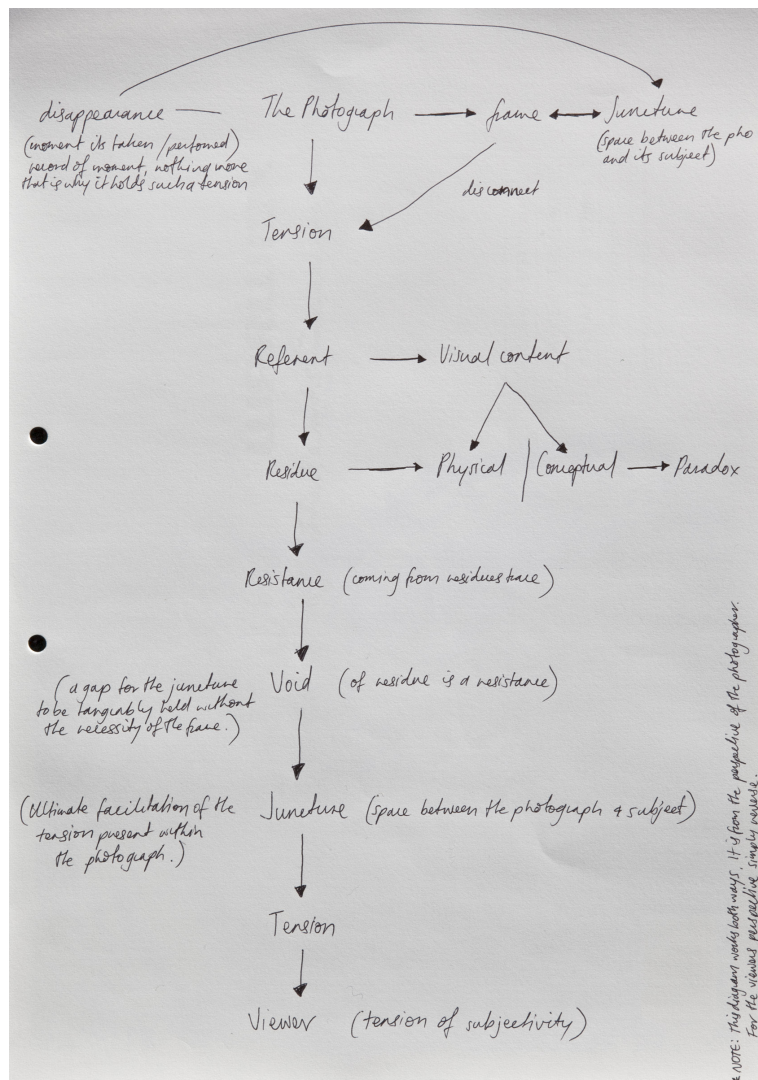 disappearance
The Photograph
frame
Juncture
(moment its taken / performed)
record of moment, nothing more
that is why it holds such a tension
(space between the pho
and its subject)
disconnect
Tension
Referent
Visual content
Residue
Physical
Conceptual
Paradox
Resistance (coming from residues trace)
(a gap for the juncture
to be tangibly held without
the necessity of the frame.)
Void (of residue is a resistance)
(Ultimate facilitation of the
tension present within
the photograph.)
Juncture (space between the photograph & subject)
Tension
Viewer (tension of subjectivity)
NOTE: This diagram works both ways. It is from the perspective of the photographer.
For the viewers perspective simply reverse.